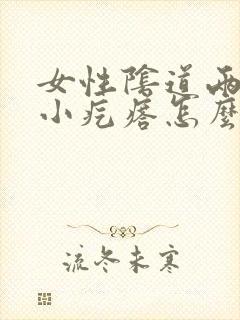 女性陰道兩
小疙瘩怎麼
流冬未寒